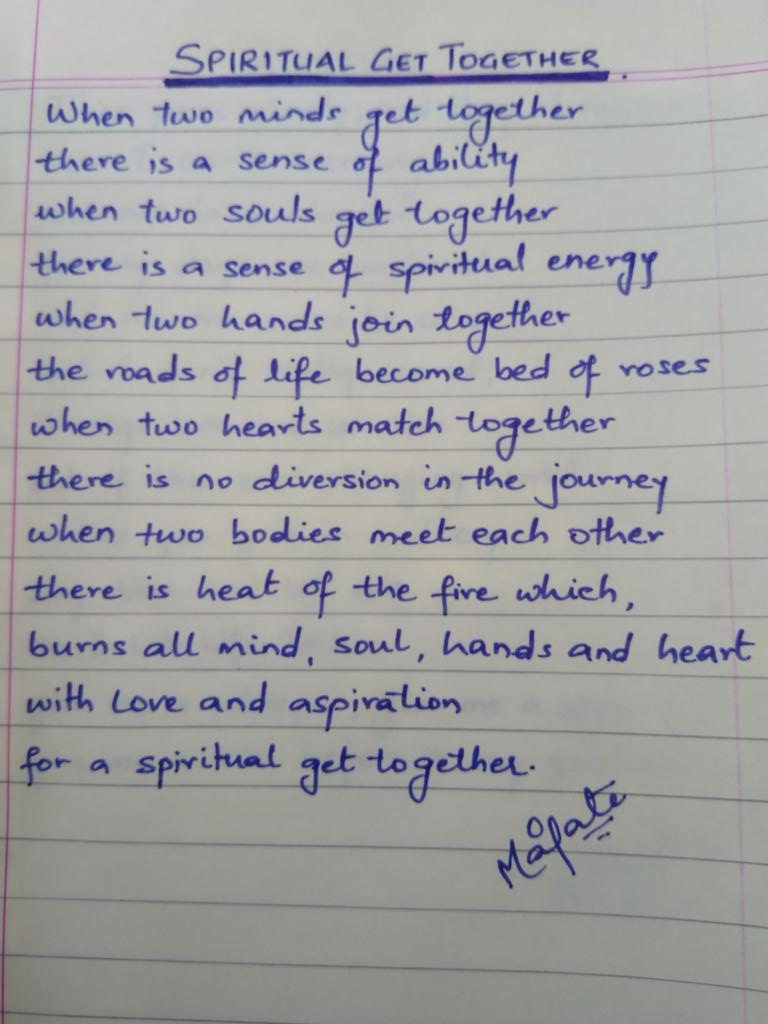 SPIRITUAL GET TOGETHER.
When two minds get together
there is a sense of ability
when two souls get together
there is a sense of spiritual energy
when two hands join together
the roads of life become bed of roses
when two hearts match together
there is no diversion in the journey
when two bodies meet each other
there is heat of the fire which,
burns all mind, soul, hands and heart
with love and aspiration
for a spiritual get together.